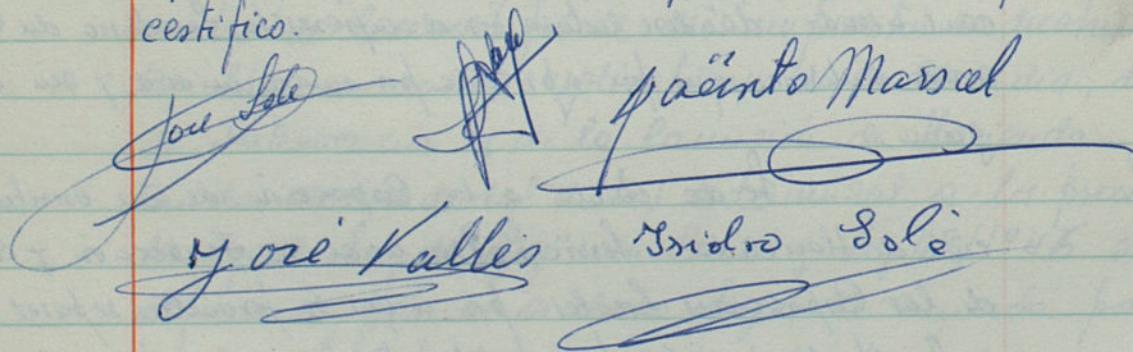 certifico.
José Solé
Jacinto Marsal
José Vallés Isidro Solé